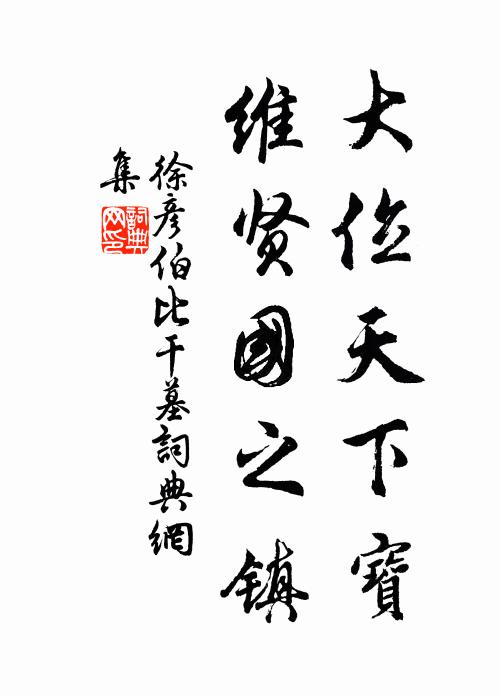 大位天下寶
維贤國之镇
徐彦伯比干墓詞典網
集
詞典
网印